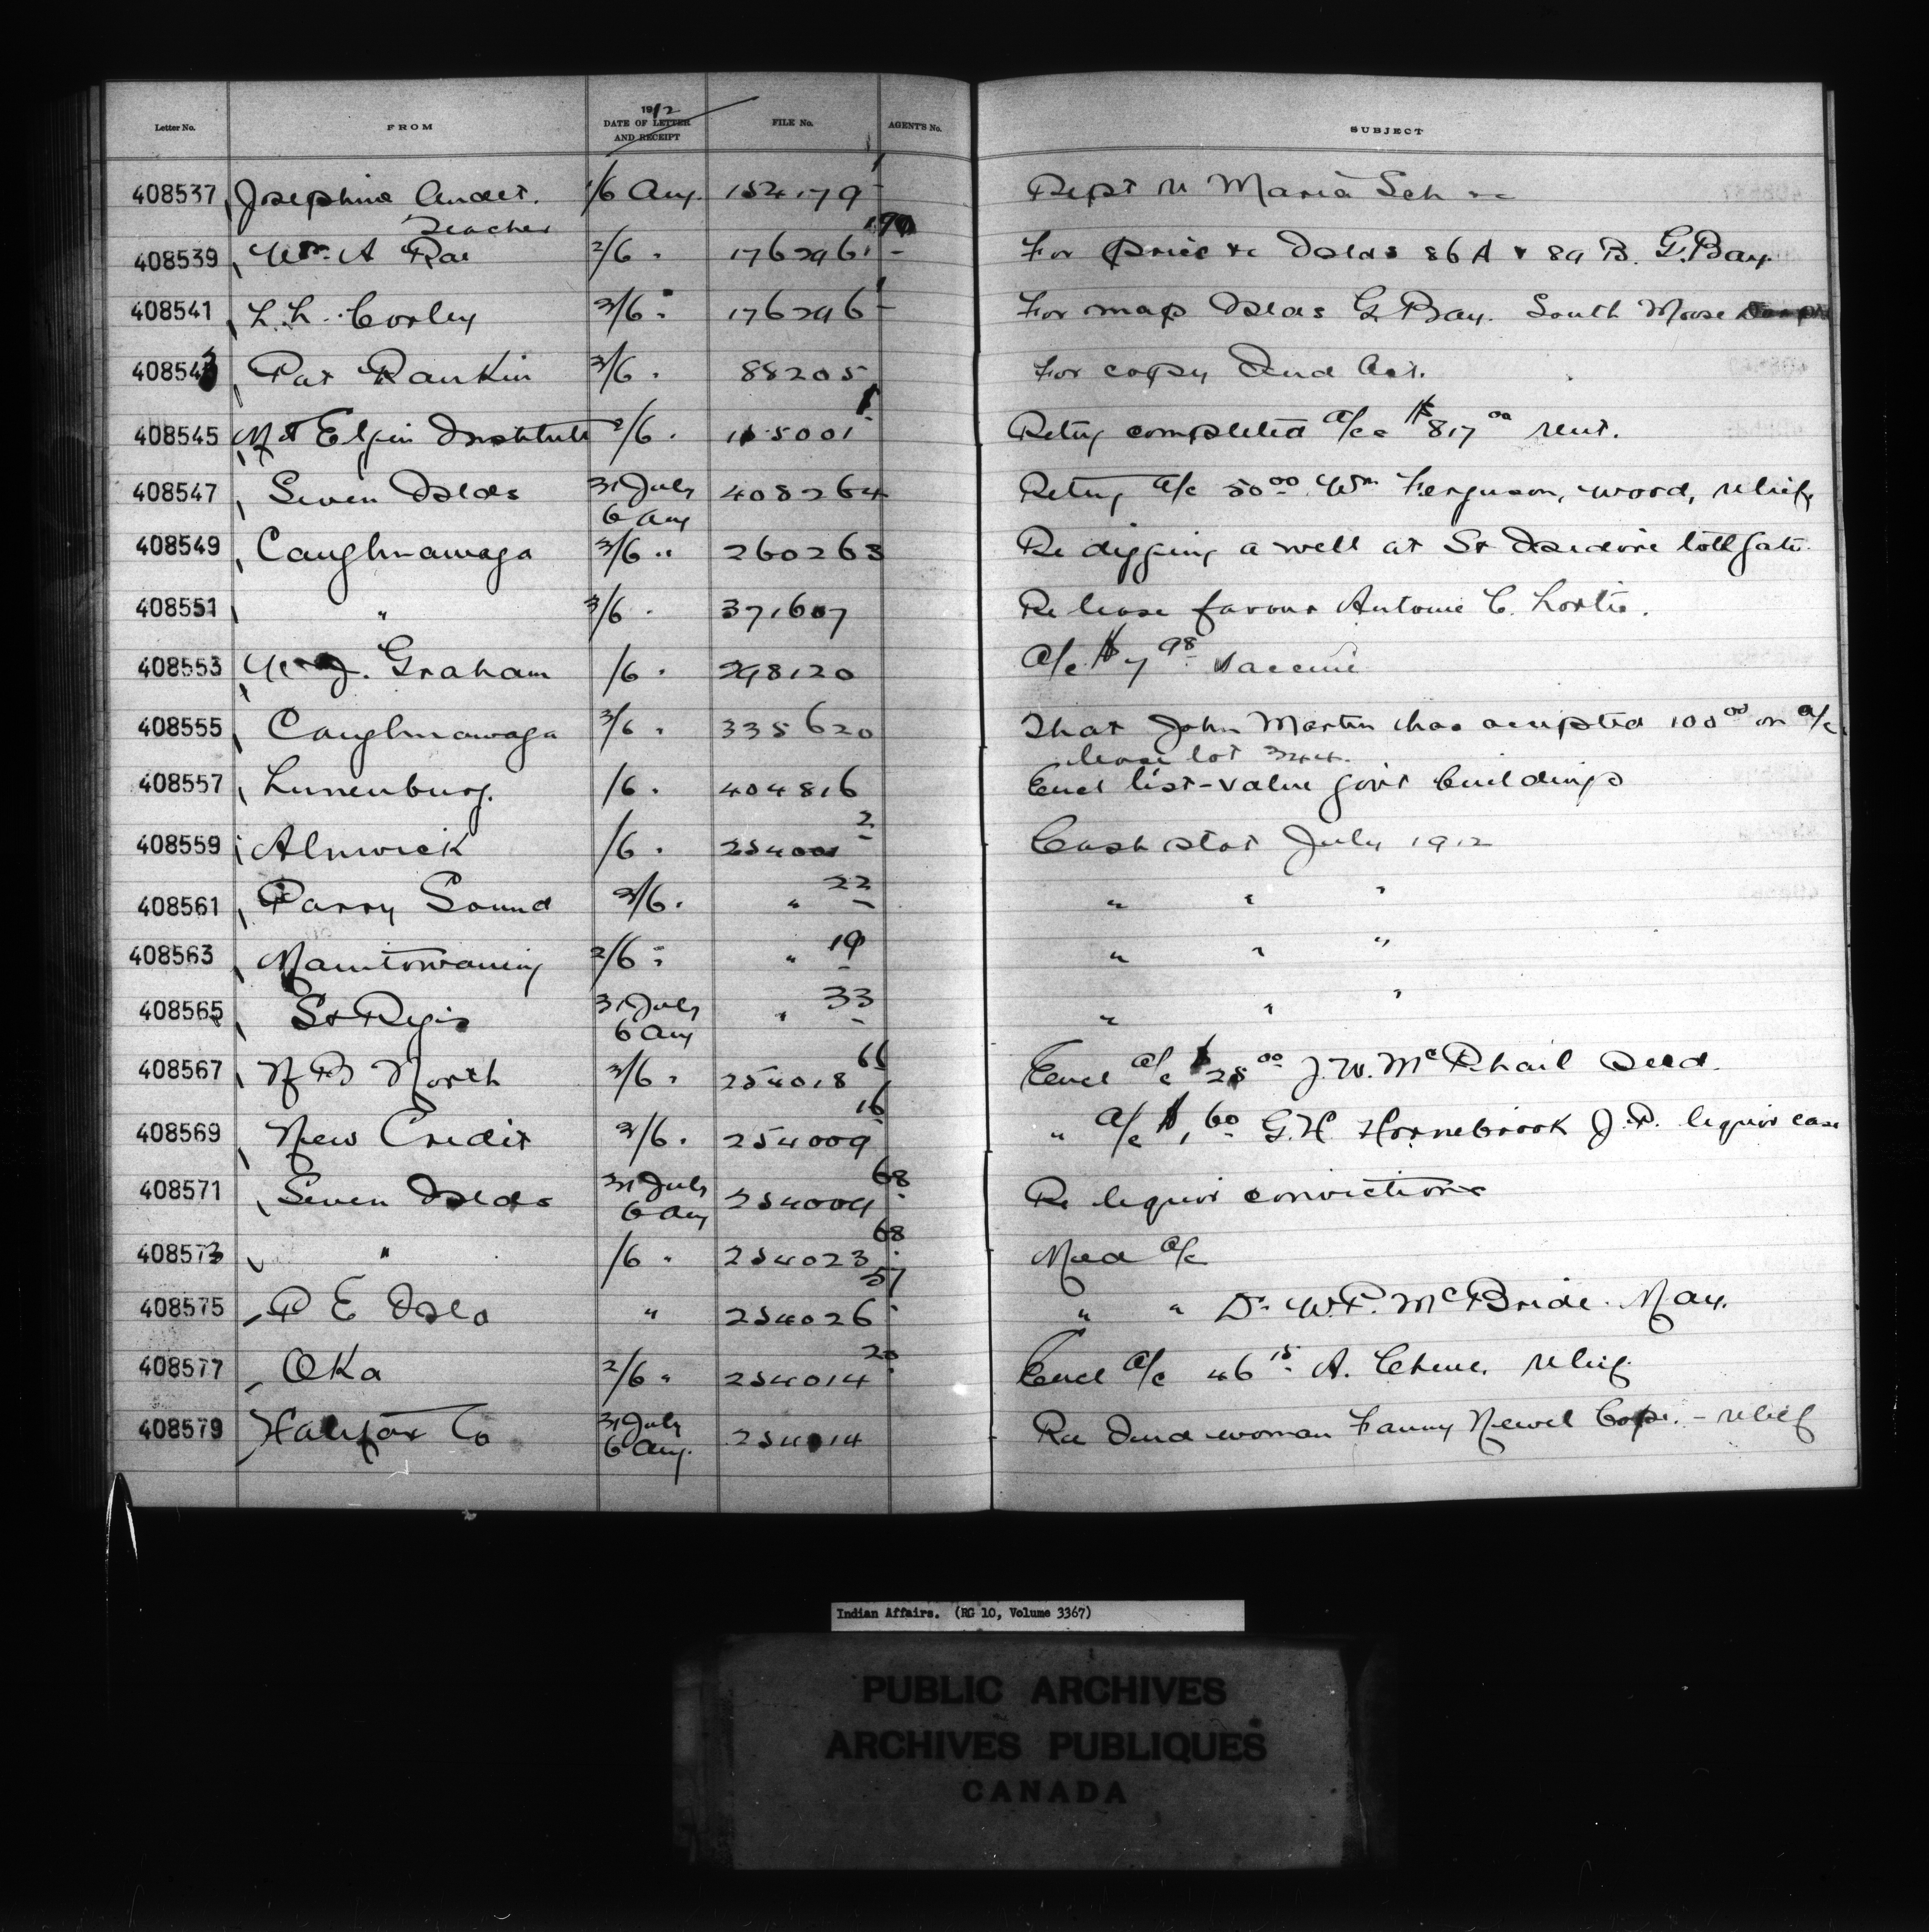 1912
Letter No. FROM DATE OF LETTER AND RECEIPT FILE No. AGENT'S No. SUBJECT
408537 Josephine Audet. 1/6 Aug. 154179-1 Rept re Maria Sch &c
Teacher
408539 Wm. A Rae 2/6 " 176296 For price &c Islds 86 A & 89 B. G. Bay
408541 L. L. Corley 3/6 " 176296-1 For map Islds G. Bay. South Moose
408543 Pat Rankin 3/6 " 88205 For copy Ind Act.
408545 Mt Elgin Institute 2/6 " 155001-1 Retng completed a/cs $817 00 rent.
408547 Seven Islds 31 July 408264 Retng a/c 50 00 Wm Ferguson, wood, relief
6 Aug
408549 Caughnawaga 3/6 " 260263 Re digging a well at St Isidore tollgate.
408551 " 3/6 " 371607 Re lease favour Antoine C. Lortie.
408553 W. J. Graham /6 " 298120 a/c $7 98 vaccine
408555 Caughnawaga 3/6 " 335620 That John Martin has accepted 100 00 on a/c
lease lot 344.
408557 Lunenburg. /6 " 404816 Encl list-value govt buildings
408559 Alnwick /6 " 254001-2 Cash stat July 1912
408561 Parry Sound 3/6 " " 22 " " "
408563 Manitowaning 2/6 " " 19 " " "
408565 St Regis 31 July " 33 " " "
6 Aug
408567 N B North 3/6 " 254018-66 Encl a/c $25 00 J. W. McPhail seed.
408569 New Credit 3/6 " 254009-16 " a/c $1 60 G. H. Hornebrook J. P. liquor case
408571 Seven Islds 31 July 254009-68 Re liquor convictions
6 Aug
408573 " /6 " 254023-68 Med a/c
408575 P E Isld " 254026-57 " " Dr. W. P. McBride. May.
408577 Oka 2/6 " 254014-20 Encl a/c 46 15 A. Chene. relief
408579 Halifax Co 31 July 254014 Re Ind woman Fanny Newel Cope. - relief
6 Aug.
Indian Affairs. (RG 10, Volume 3367)
PUBLIC ARCHIVES
ARCHIVES PUBLIQUES
CANADA